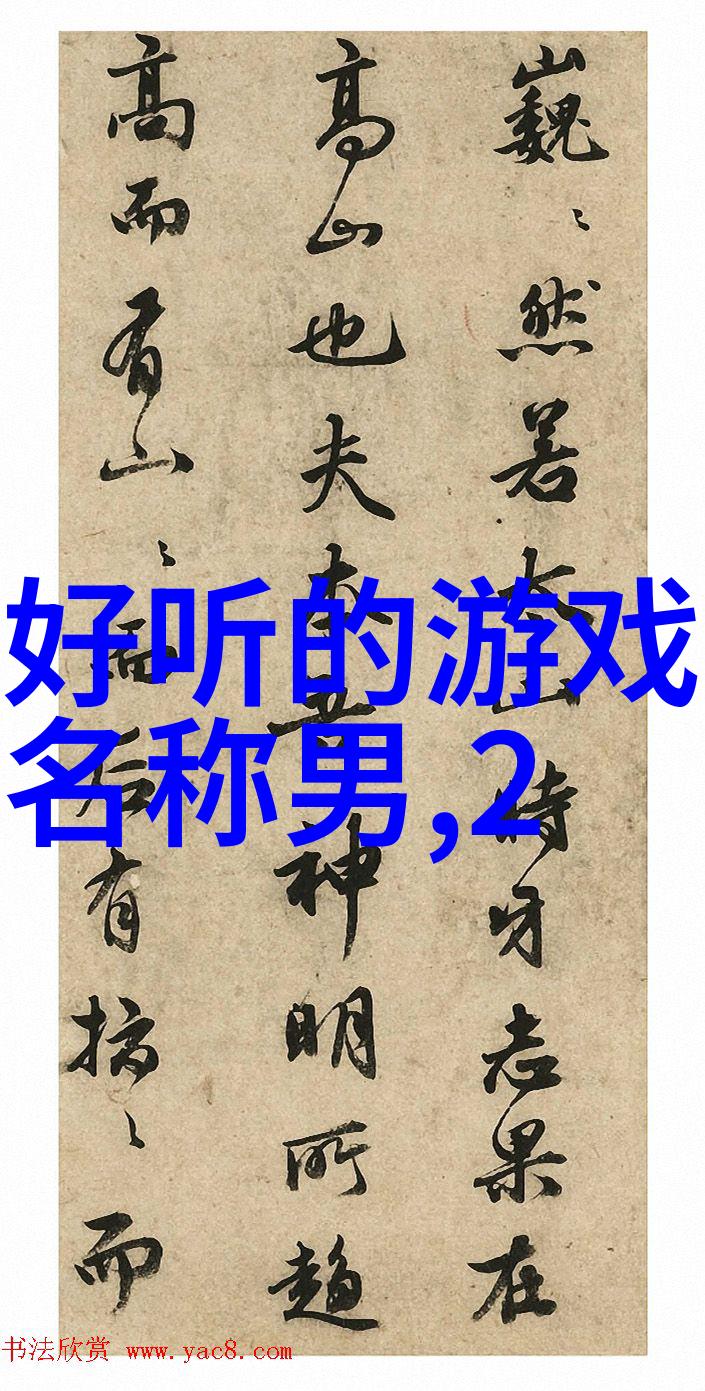 巍〻然若太山時牙志果在
高山也夫神明所趨
高而有山〻而后有〻而
好听的游戏
名称男,2
书法欣赏 www.yac8.com